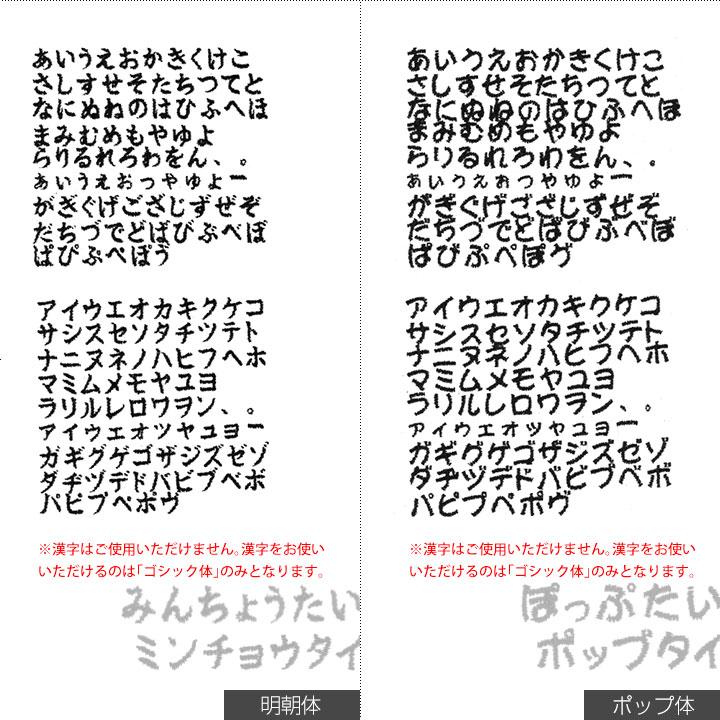 あいうえおかきくけこ
さしすせそたちつてと
なにぬねのはひふへほ
まみむめもやゆよ
らりるれろわをん、。
ぁぃぅぇぉっゃゅょー
がぎぐげござじずぜぞ
だぢづでどばびぶべぼ
ぱぴぷぺぽう
アイウエオカキクケコ
サシスセソタチツテト
ナニヌネノハヒフヘホ
マミムメモヤユヨ
ラリルレロワヲン、。
ァィゥェォッャュョー
ガギグゲゴザジズゼゾ
ダヂヅデドバビブベボ
パピプペポヴ
※漢字はご使用いただけません。漢字をお使い
いただけるのは「ゴシック体」のみとなります。
みんちょうたい
ミンチョウタイ
明朝体
あいうえおかきくけこ
さしすせそたちつてと
なにぬねのはひふへほ
まみむめもやゆよ
らりるれろわをん、。
ぁぃぅぇぉっゃゅょー
がぎぐげござじずぜぞ
だぢづでどばびぶべぼ
ぱぴぷぺぽヴ
アイウエオカキクケコ
サシスセソタチツテト
ナニヌネノハヒフヘホ
マミムメモヤユヨ
ラリルレロワヲン、。
ァィゥェォッャュョー
ガギグゲゴザジズゼゾ
ダヂヅデドバビブベボ
パピプペポヴ
※漢字はご使用いただけません。漢字をお使い
いただけるのは「ゴシック体」のみとなります。
ぽっぷたい
ポップタイ
ポップ体